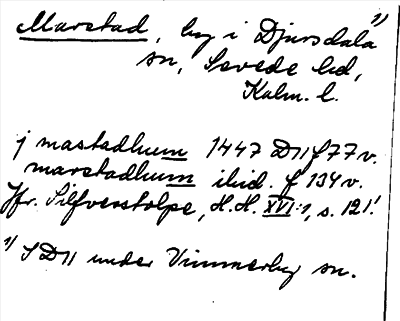 Marstad, by i Djursdala 1)
sn, Sevede hd,
Kalm. l.
j mastadhum 1447 D11 f 77 v.
marstadhum ibid. f 134 v.
Jfr. Silfverstolpe, H.H. XVI:1, s. 121!
1) I D11 under Vimmerby sn.